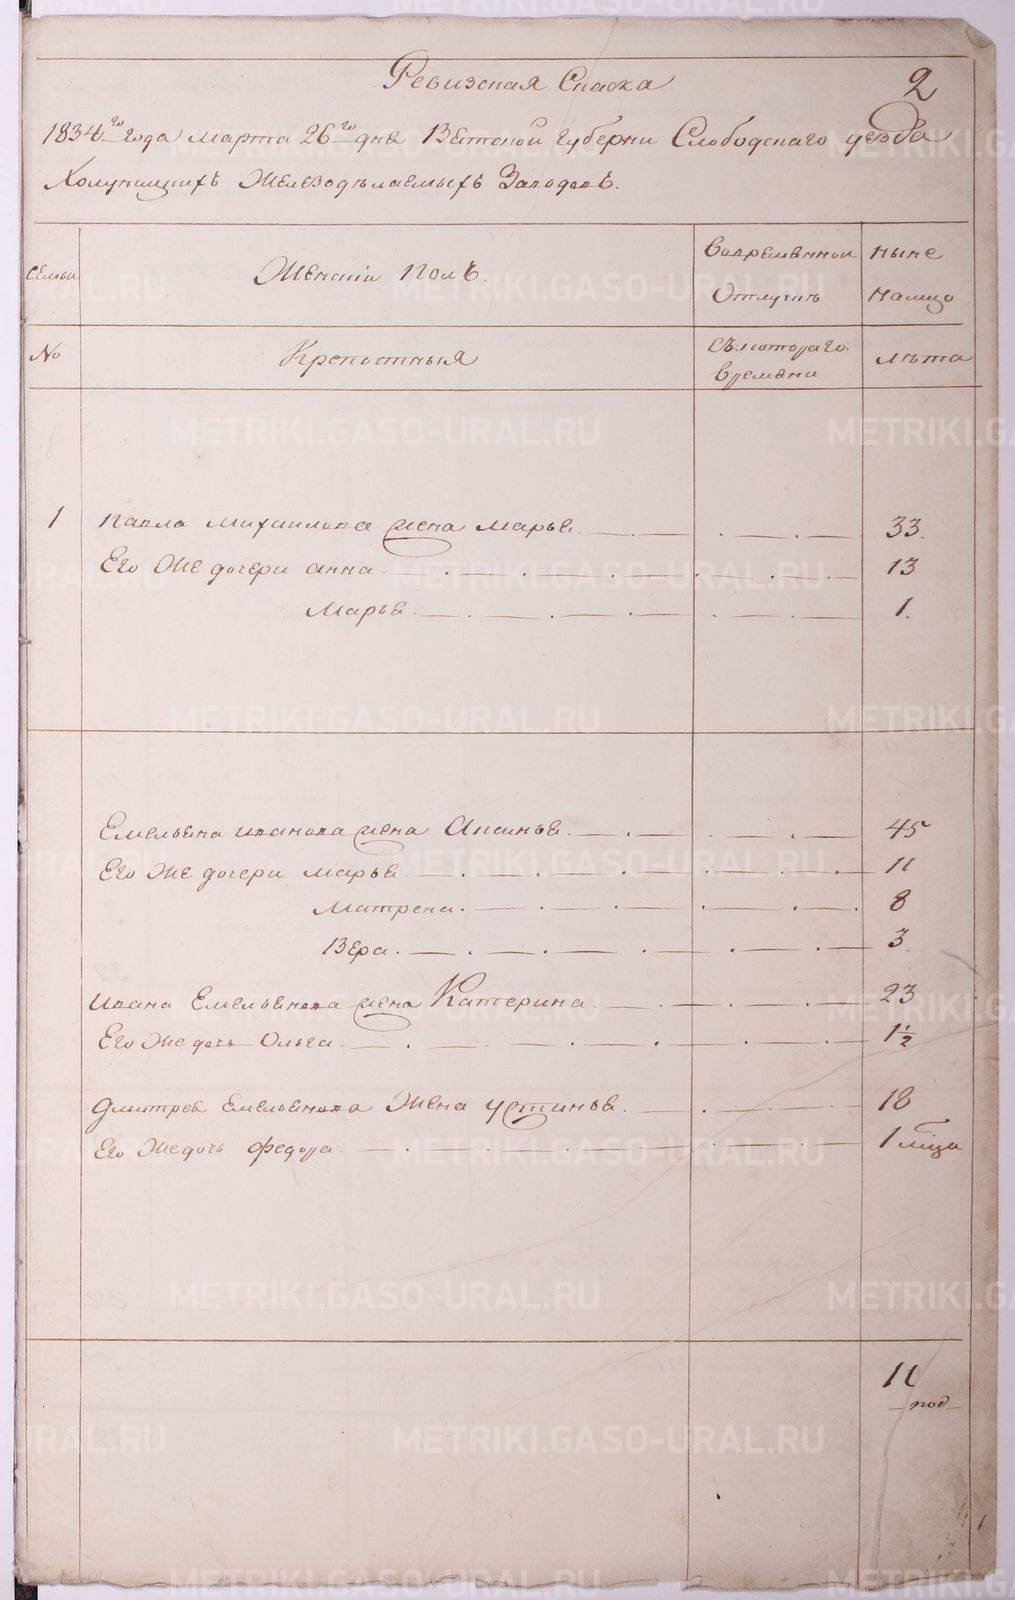 Ревизская Сказка
2
1834го года марта 26го дня Вятской Губерни Слободскаго уезда
Холуницкихъ Железоделаемыхъ Заводовъ.
семьи
Женский полъ.
Во временной Отлучке
ныне налицо
No
Крепостныя
Съ котораго времени
лета
1 Павла Михайлова жена Марья 33.
Его же дочери Анна 13
Марья 1.
Емельяна Иванова жена Аксинья 45
Его же дочери Марья 11
Матрена 8
Вера 3
Ивана Емельянова жена Катерина 23
Его же дочь Ольга 1½
Дмитрея Емельянова жена Устинья 18
Его же дочь Федора 1 мца
11
METRIKI.GASO-URAL.RU